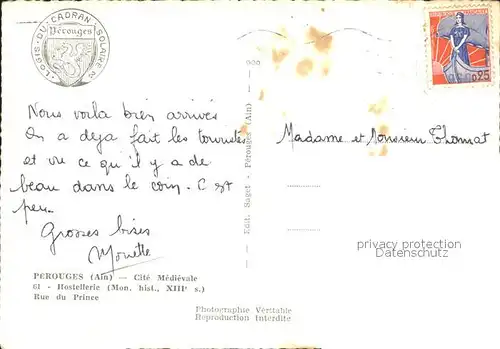 LOGIS-DU-CADRAN SOLAIRE
Pérouges
0,25
Nous voila bien arrivés
On a deja fait les touristes
et vu ce qu'il y a de
beau dans le coin. C'est
peu.
Grosses bises
Madame et Monsieur Thomat
Edit. Saget - Pérouges (Ain)
PEROUGES (Ain) — Cité Médiévale
61 - Hostellerie (Mon. hist., XIIIe s.)
Rue du Prince
Photographie Véritable
Reproduction Interdite
privacy protection
Datenschutz